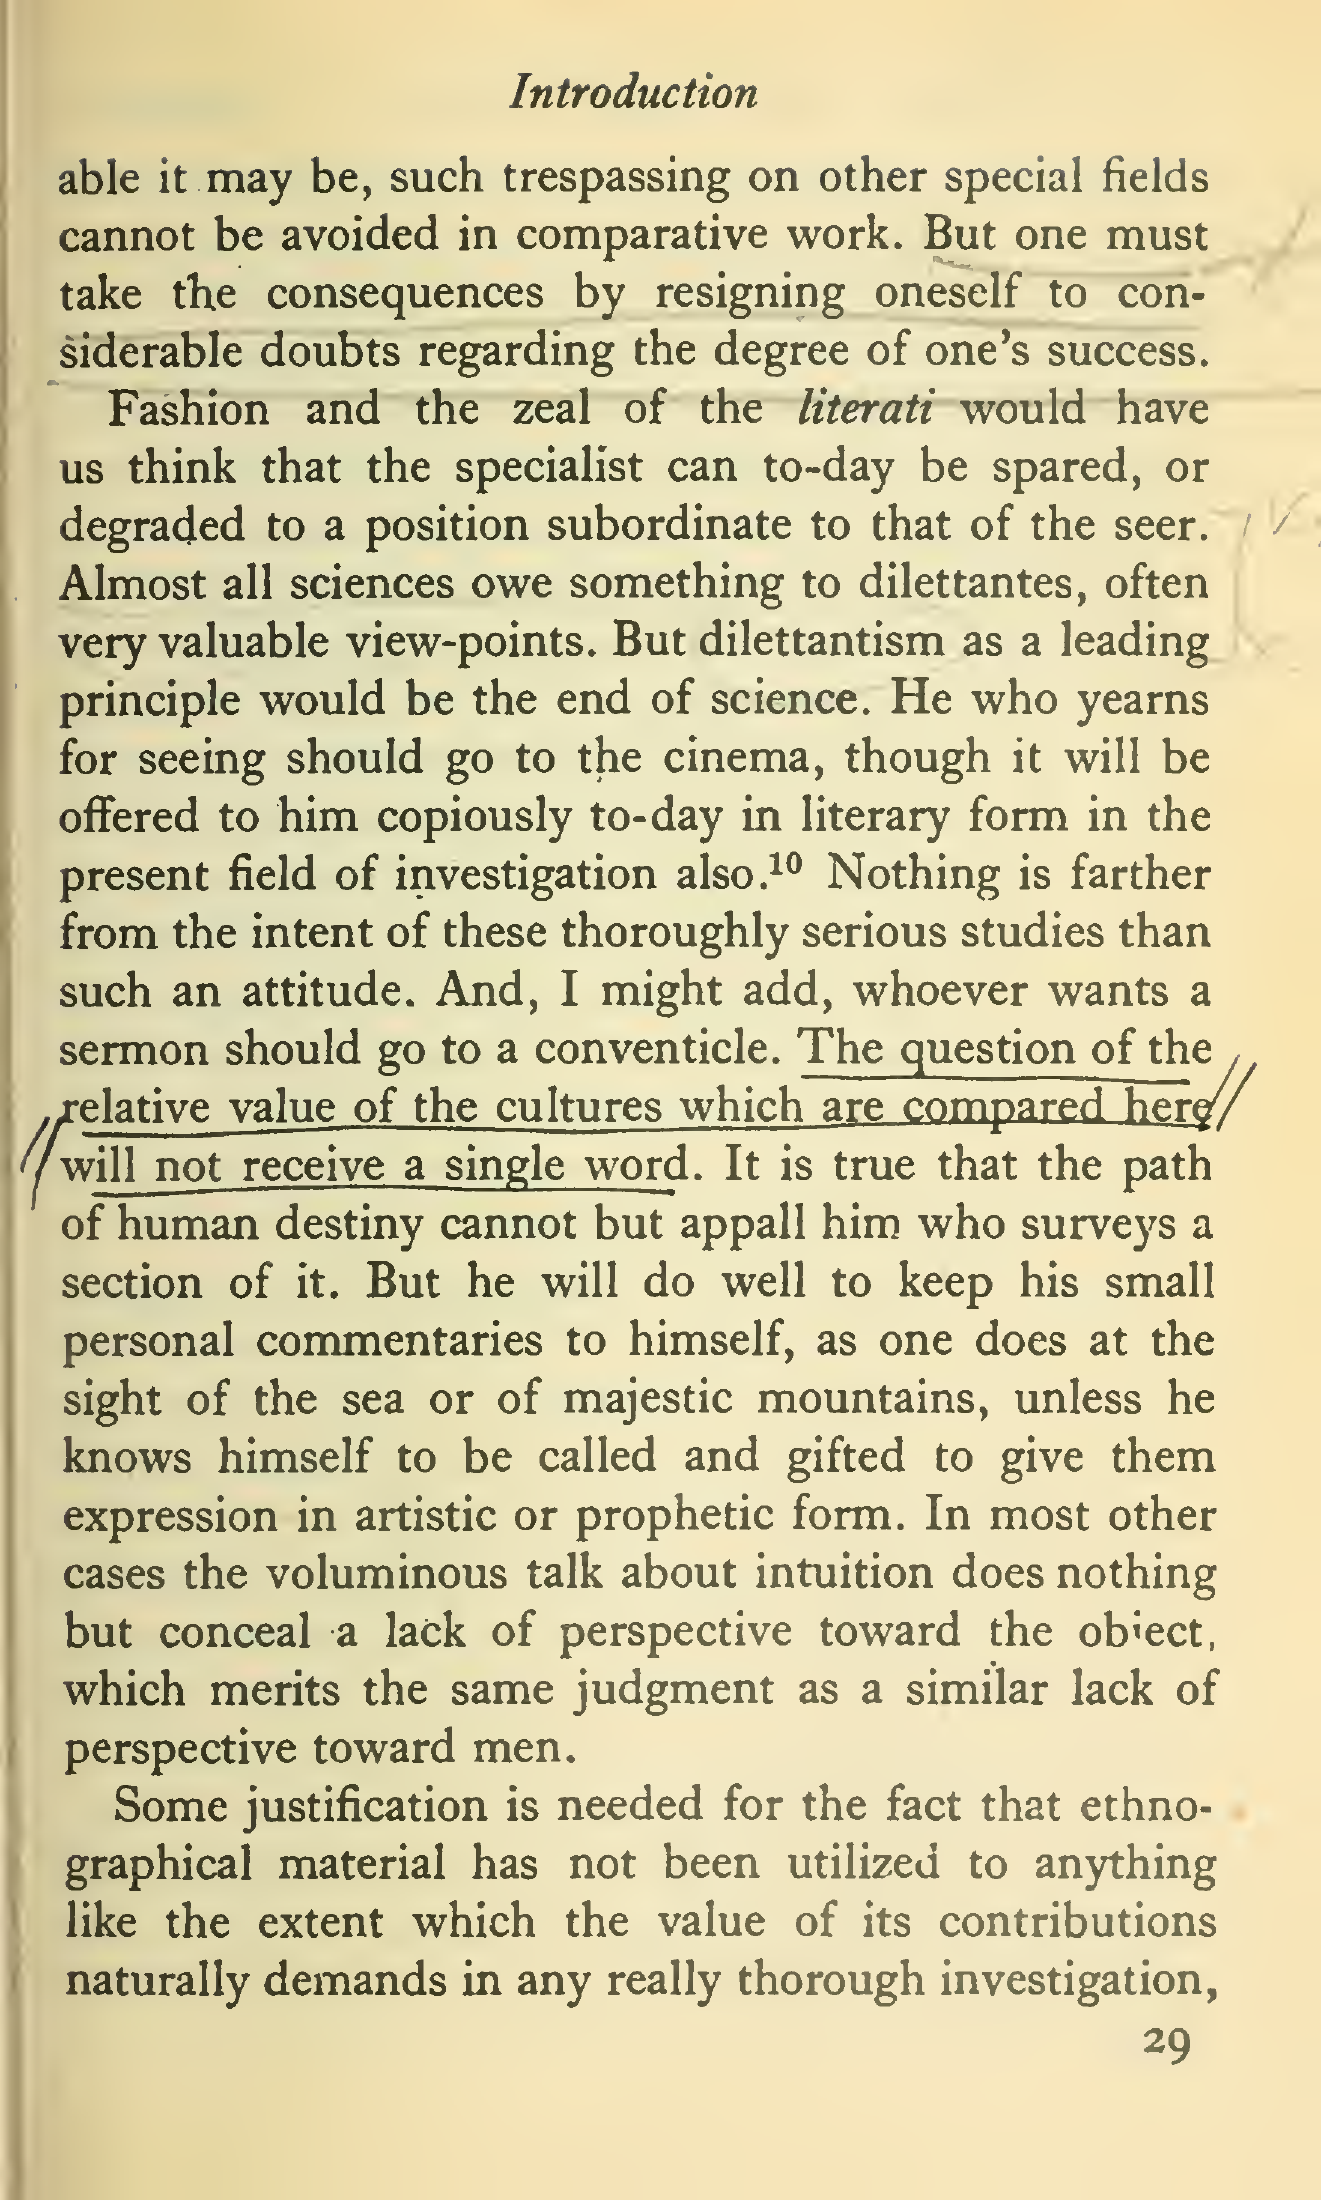 Introduction
able it may be, such trespassing on other special fields
cannot be avoided in comparative work. But one must
take the consequences by resigning oneself to con-
siderable doubts regarding the degree of one's success.
Fashion and the zeal of the literati would have
us think that the specialist can to-day be spared, or
degraded to a position subordinate to that of the seer.
Almost all sciences owe something to dilettantes, often
very valuable view-points. But dilettantism as a leading
principle would be the end of science. He who yearns
for seeing should go to the cinema, though it will be
offered to him copiously to-day in literary form in the
present field of investigation also.¹⁰ Nothing is farther
from the intent of these thoroughly serious studies than
such an attitude. And, I might add, whoever wants a
sermon should go to a conventicle. The question of the
relative value of the cultures which are compared here
will not receive a single word. It is true that the path
of human destiny cannot but appall him who surveys a
section of it. But he will do well to keep his small
personal commentaries to himself, as one does at the
sight of the sea or of majestic mountains, unless he
knows himself to be called and gifted to give them
expression in artistic or prophetic form. In most other
cases the voluminous talk about intuition does nothing
but conceal a lack of perspective toward the object,
which merits the same judgment as a similar lack of
perspective toward men.
Some justification is needed for the fact that ethno-
graphical material has not been utilized to anything
like the extent which the value of its contributions
naturally demands in any really thorough investigation,
29